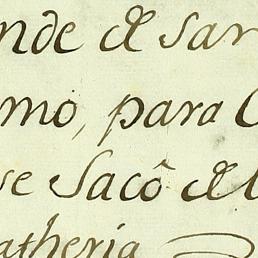 nde de sar
mo, para
se Sacô de
atheria